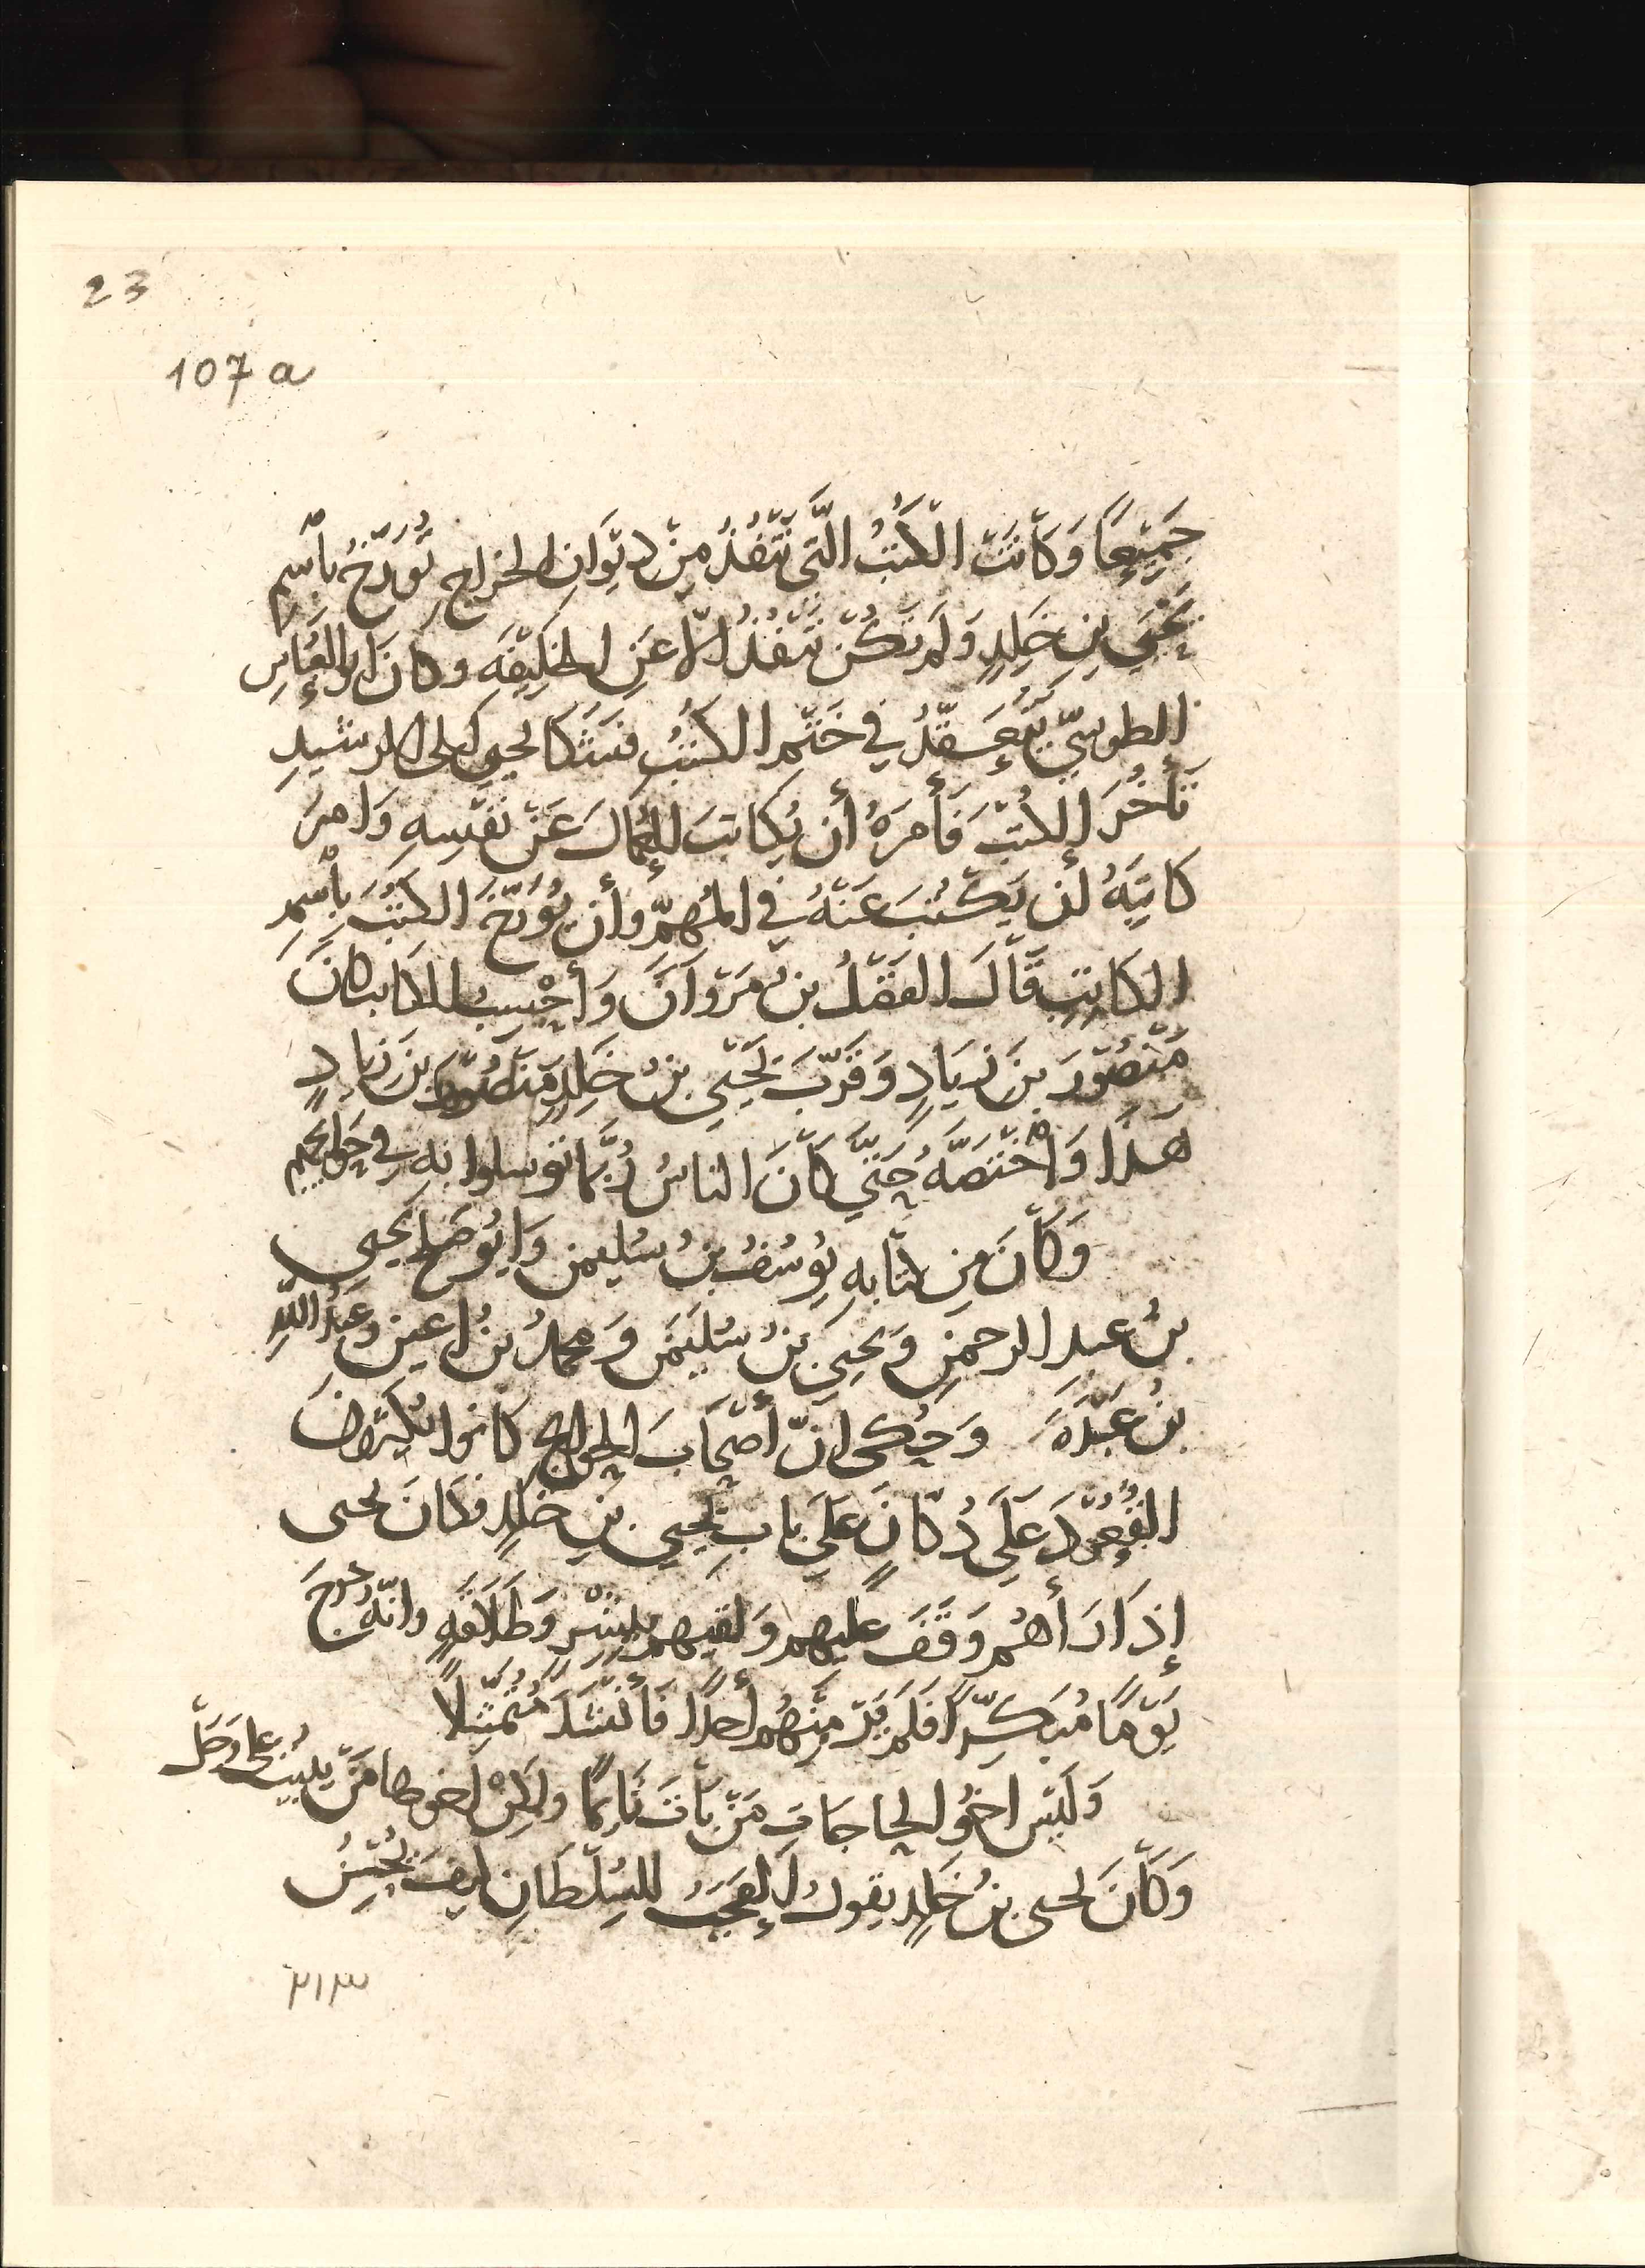 23
107 a
جَمِيْعًا وَكَانَتْ الْكُتُبُ الَّتِي تَنْفُذُ مِنْ دِيْوَانِ الخراجِ تُؤَرَّخُ بِاسْمِ
يَحْيَي بنِ خَلِدٍ وَلَم تَكُنْ تَنْفُذُ اِلَّا عَنِ الخلِيْفَهِ وكان ابو العَبَّاسِ
الطوسِيّ يَتَعَقَّدُ في خَتْمِ الكُتُبِ فشَكَا يحيى الى الرشيدِ
تَأَخُّرَ الكُتبِ فَأَمَرَهُ أن يُكاتبَ العُمالَ عَنْ نَفْسِهِ وَامرَ
كاتِبَهُ أن يَكْتُبَ عَنْهُ في المُهِمِّ وأن يُؤَرّخَ الكُتُبَ بِاسْمِ
الكاتِبِ قَالَ الفَضْلُ بنُ مَرْوَانَ وَأَحْسِبُ الكاتب كانَ
مَنْصُوْرَ بنَ زِيَادٍ وَقَرَّبَ يَحْيَي بنُ خَلِدٍ مَنصُوْرَ بنَ زيادٍ
هَذَا وَاخْتَصَّهُ حَتَّي كَانَ الناسُ رُبَّمَا توسلوا بهِ في حَوايجهم
وَكَانَ مِن كتابهِ يُوسُفُ بنُ سُلَيمن وَابوُ صَلح يحيى
بنُ عبدِ الرحمنِ وَيحيي بنُ سُلَيْمَن وَمحمدُ بنُ اعين وعبدُ اللهِ
بنُ عَبْدَهَ وَحُكى انّ أصْحَابَ الحوايج كانوا يُكثرونَ
القُعُوْدَ عَلَي دُكانٍ عَلَي بابِ يَحيي بنِ خَلِدٍ فكَانَ يحيى
إذَا رَأهُم وَقَفَ عليهم وَلقيهم ببِشْرٍ وَطَلَاقَهٍ وانّه خرجَ
يَوْمًا مُبَكِّرًا فَلَم يَرَ مِنْهُم أحَدًا فَأنْشَدَ مُتَمَثِّلًا
وَلَيْس اخُو الحاجاتِ مَنْ بَاتَ نَايمًا ولكِنْ اخوها مَنْ يَبيتُ على وَجَل
وَكَانَ يحيى بنُ خَلِدٍ يقولُ العَجَبُ للسُلْطَانِ كيفَ يُحْسِنُ
٢١٣